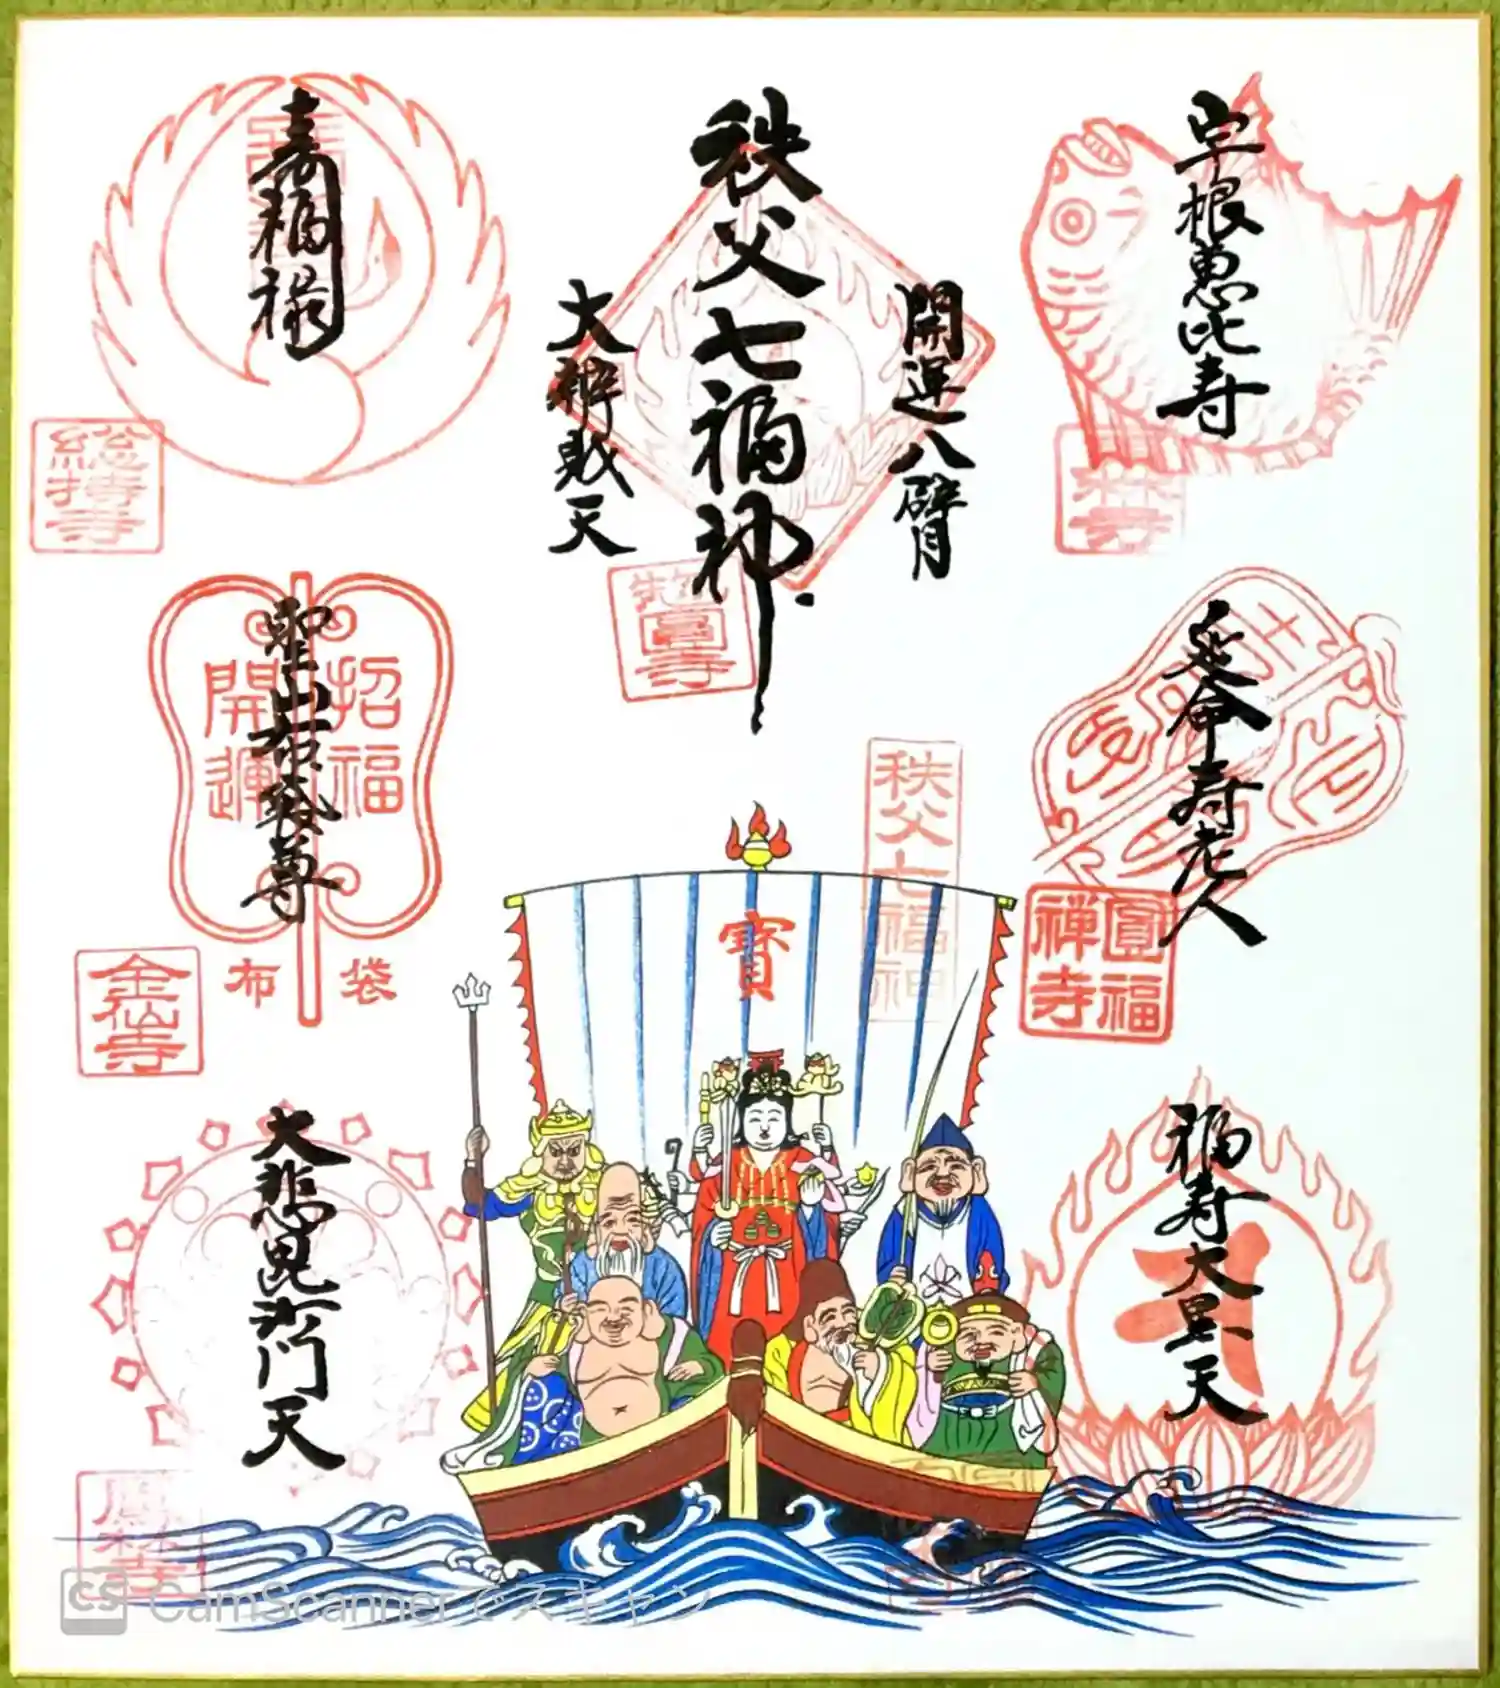 宗根恵比寿
林寺
秩父七福神
開運八臂
大辨財天
惣圓寺
寿福禄
総持寺
延命寿老人
圓福
禅寺
聖山布袋尊
招福
開運
布袋
金仙寺
秩父七福神
寳
福寿大黒天
大悲毘沙門天
鳳林寺
CS CamScannerでスキャン